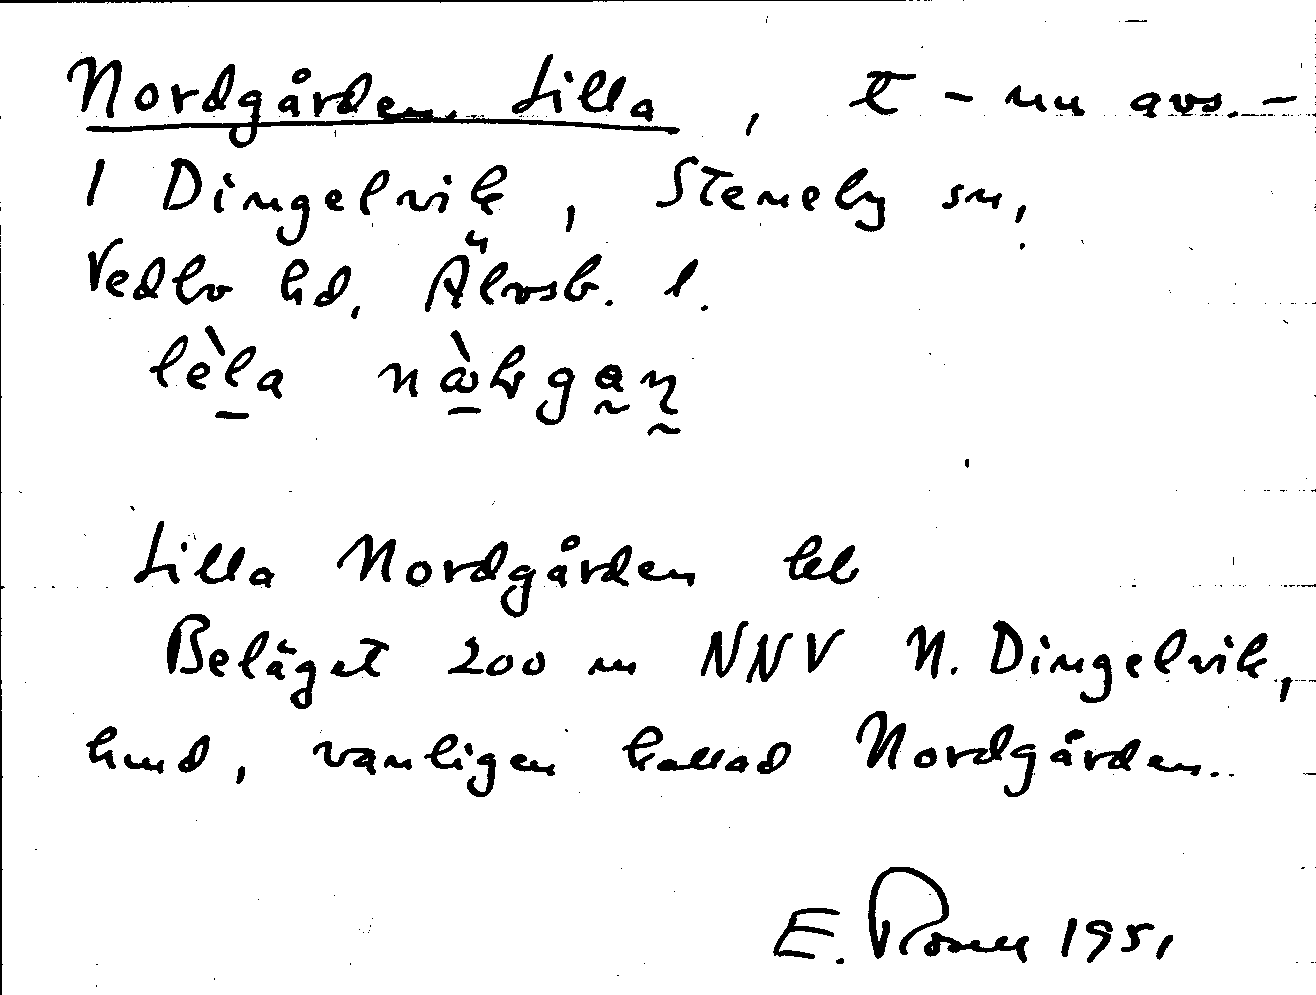 Nordgården Lilla, t – nu avs. –
1 Dingelvik, Steneby sn,
Vedbo hd, Älvsb. l.
lèla
Lilla Nordgården
Beläget 200 m NNV N. Dingelvik,
hmd, vanligen kallad Nordgården.
E. 1951